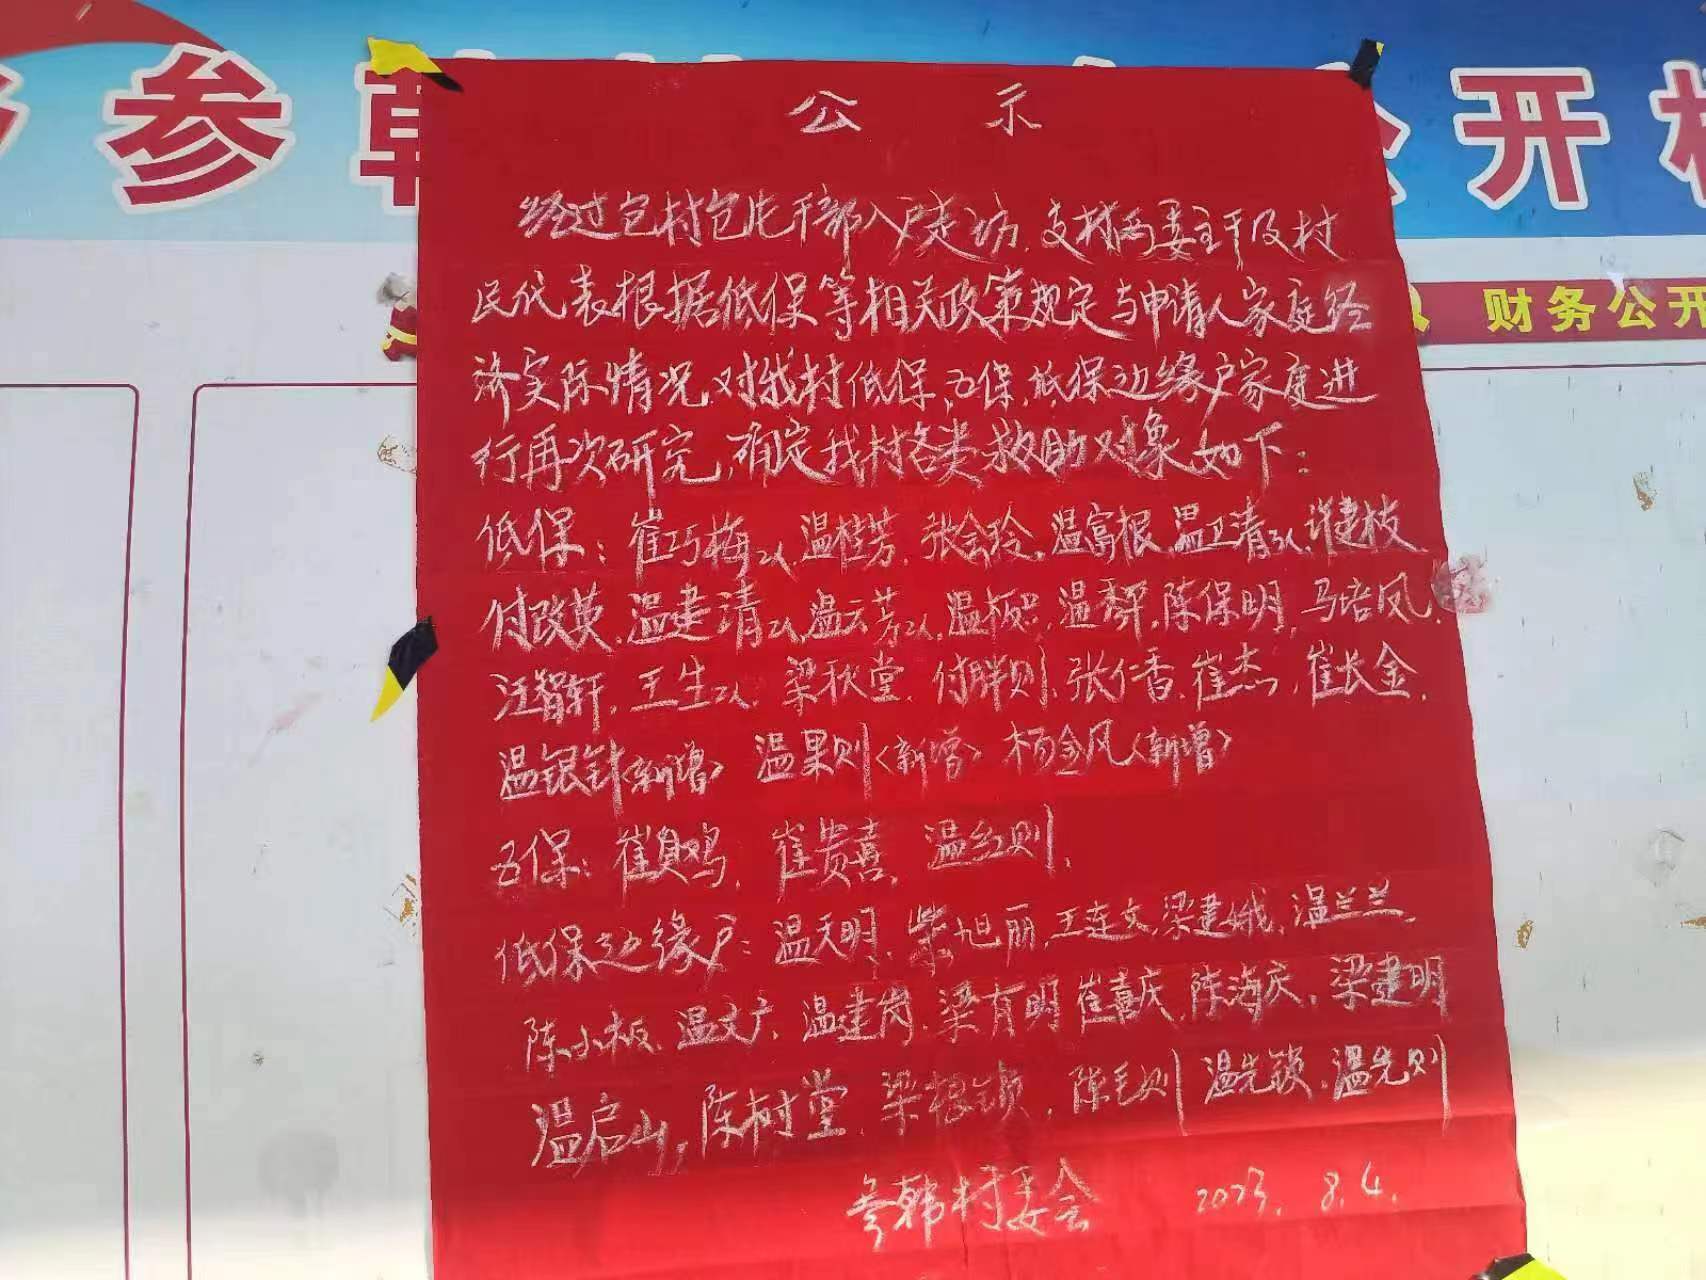 参韩
公开
财务公开
公示
经过包村包片干部入户走访,支村两委主干及村
民代表根据低保等相关政策规定与申请人家庭经
济实际情况,对我村低保,五保,低保边缘户家庭进
行再次研究,确定我村各类救助对象如下:
低保:崔巧梅2人,温桂芳,张会玲,温富根,温卫清3人,建枝
付改英,温建清2人,温云芳2人,温,温,陈保明,马培凤,
汪智轩,王生2人,梁秋堂,付胖则,张仁香,崔杰,崔长金,
温银针<新增> 温果则<新增> 杨金风<新增>
五保:崔鸡,崔贵喜,温红则,
低保边缘户:温天明,柴旭丽,王连文,梁建娥,温兰兰,
陈小板,温文广,温建岗,梁有明 崔喜庆,陈海庆,梁建明
温启山,陈树堂,梁根锁,陈毛则 温先锁,温先则
参韩村委会 2023.8.4.